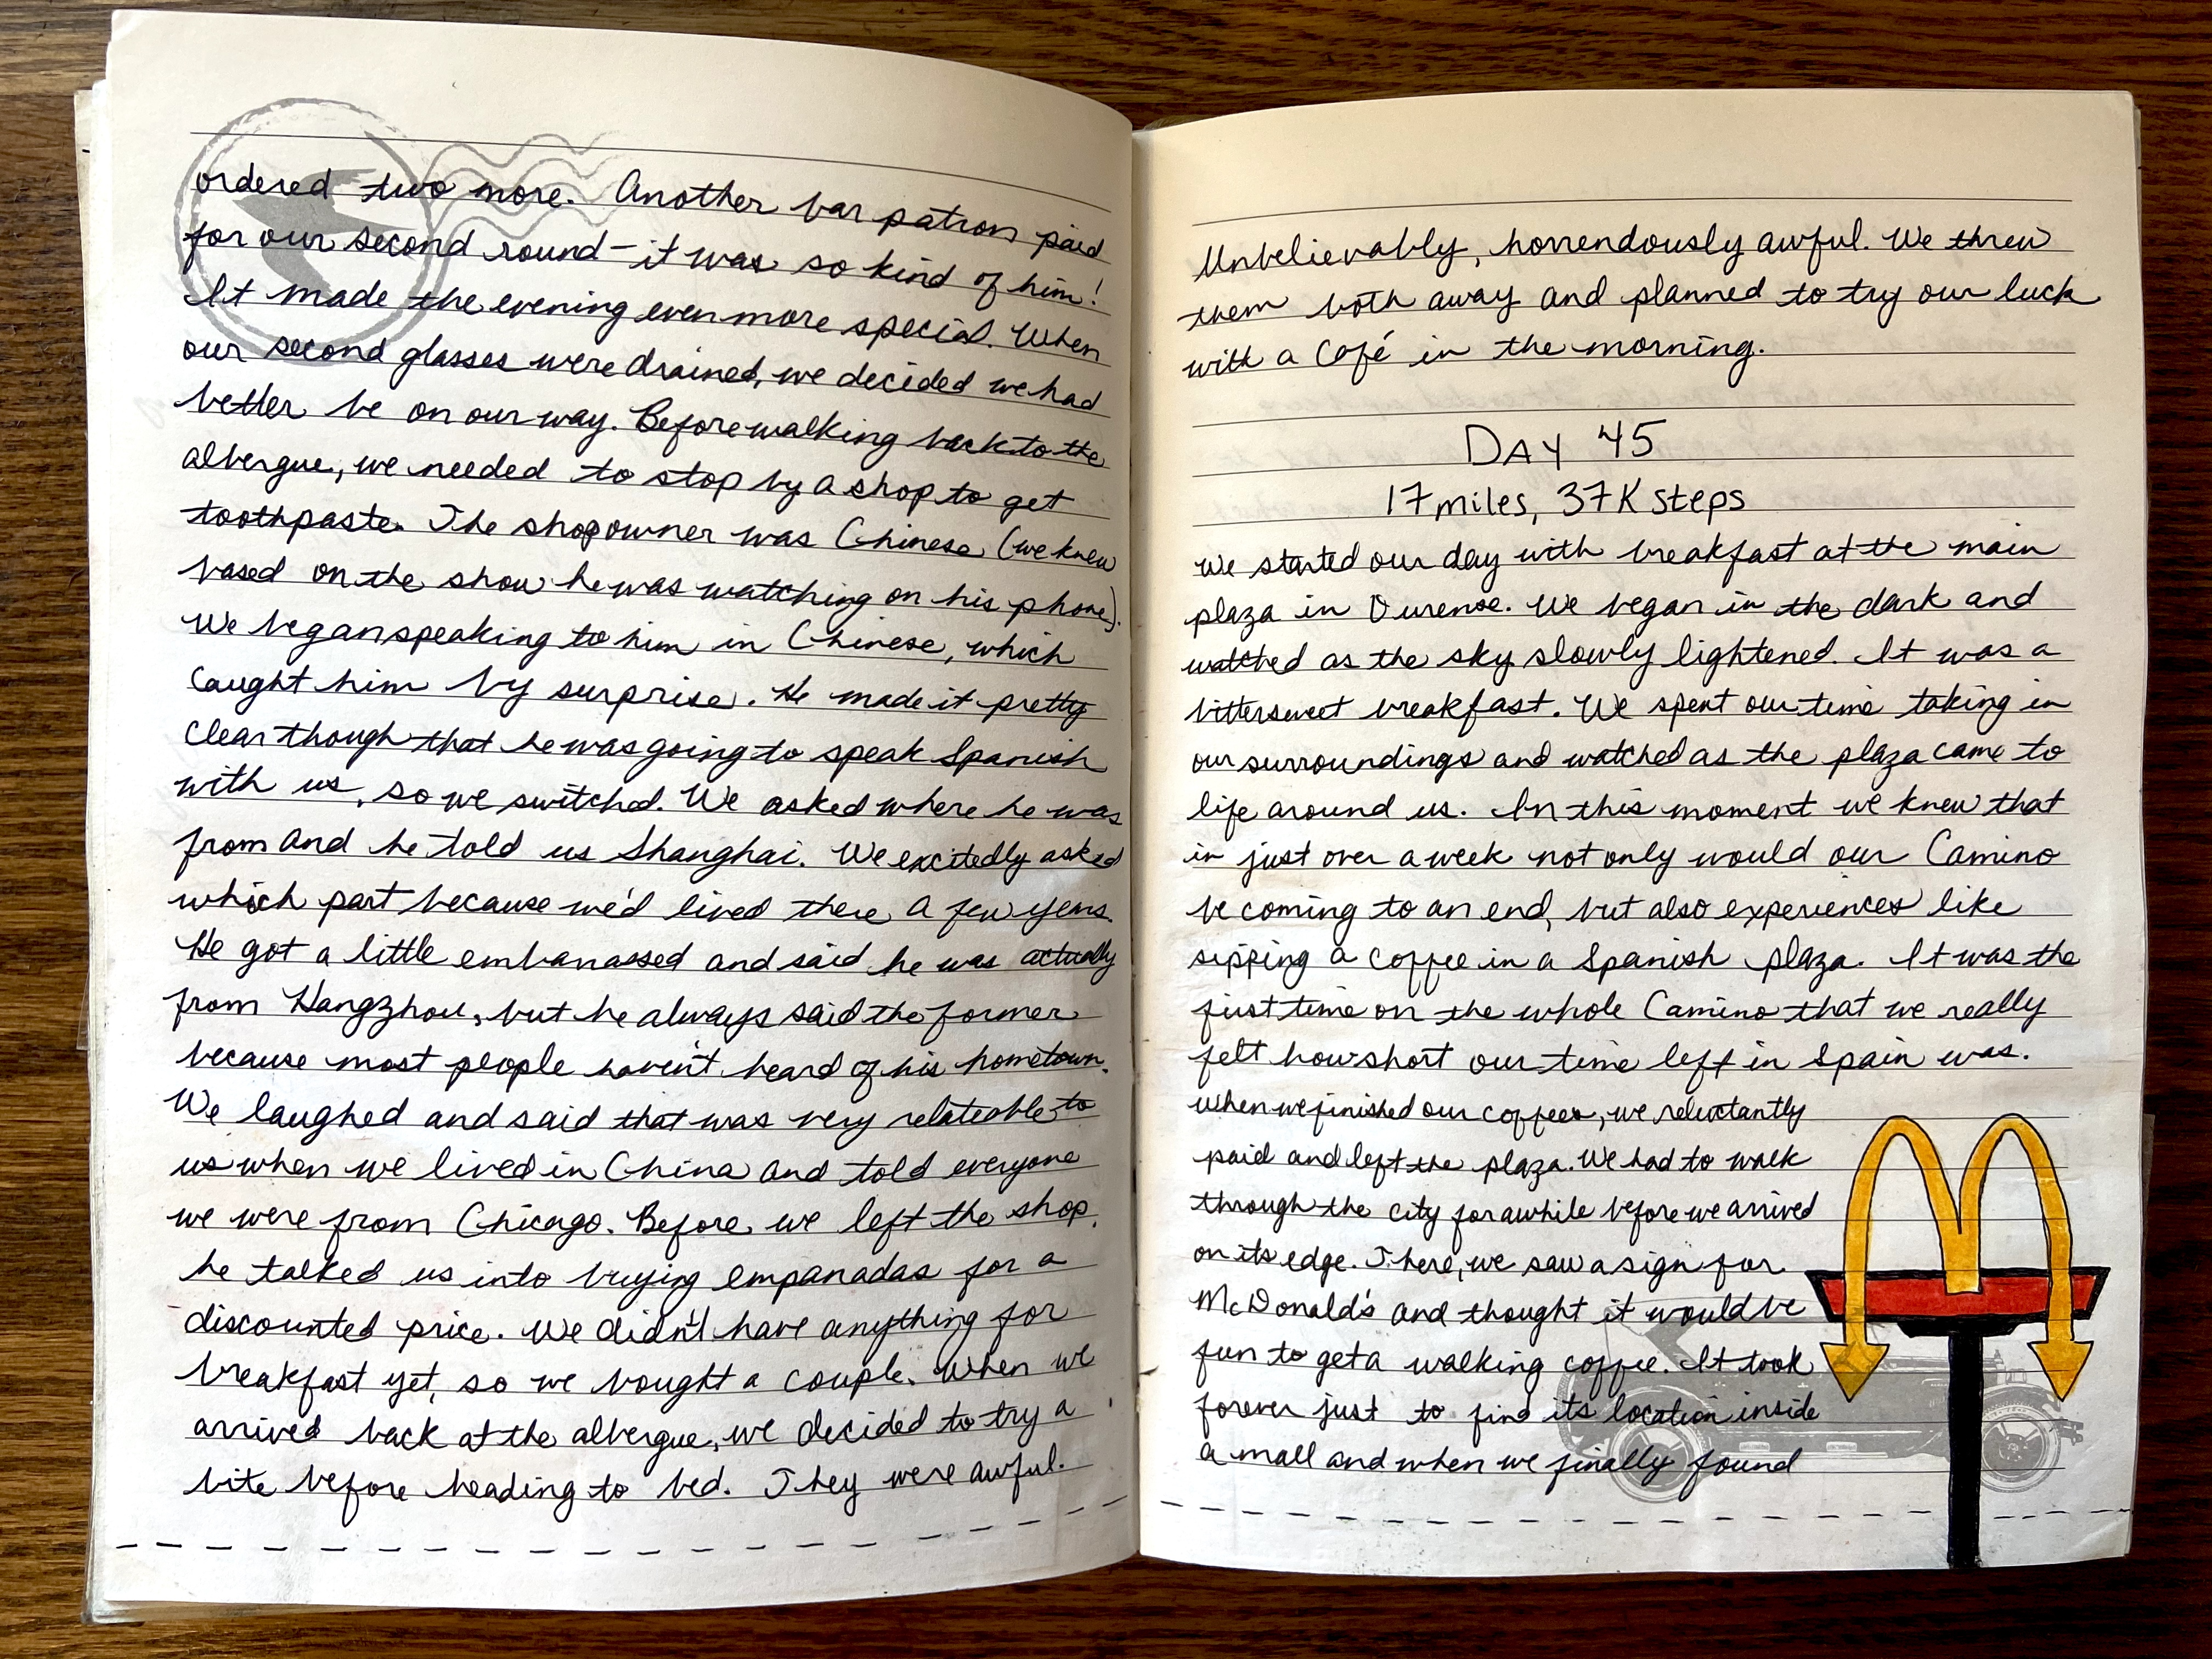 ordered two more. Another bar patron paid
for our second round - it was so kind of him!
It made the evening even more special. When
our second glasses were drained, we decided we had
better be on our way. Before walking back to the
albergue, we needed to stop by a shop to get
toothpaste. The shop owner was Chinese (we knew
based on the show he was watching on his phone).
We began speaking to him in Chinese, which
caught him by surprise. He made it pretty
clear though that he was going to speak Spanish
with us, so we switched. We asked where he was
from and he told us Shanghai. We excitedly asked
which part because we'd lived there a few years.
He got a little embarrassed and said he was actually
from Hangzhou, but he always said the former
because most people haven't heard of his hometown.
We laughed and said that was very relateable to
us when we lived in China and told everyone
we were from Chicago. Before we left the shop,
he talked us into buying empanadas for a
discounted price. We didn't have anything for
breakfast yet, so we bought a couple. When we
arrived back at the albergue, we decided to try a
bite before heading to bed. They were awful.
Unbelievably, horrendously awful. We threw
them both away and planned to try our luck
with a café in the morning.
DAY 45
17 miles, 37K steps
We started our day with breakfast at the main
plaza in Ourense. We began in the dark and
watched as the sky slowly lightened. It was a
bittersweet breakfast. We spent our time taking in
our surroundings and watched as the plaza came to
life around us. In this moment we knew that
in just over a week not only would our Camino
be coming to an end, but also experiences like
sipping a coffee in a Spanish plaza. It was the
first time on the whole Camino that we really
felt how short our time left in Spain was.
When we finished our coffees, we reluctantly
paid and left the plaza. We had to walk
through the city for awhile before we arrived
on its edge. There, we saw a sign for
McDonald's and thought it would be
fun to get a walking coffee. It took
forever just to find its location inside
a mall and when we finally found